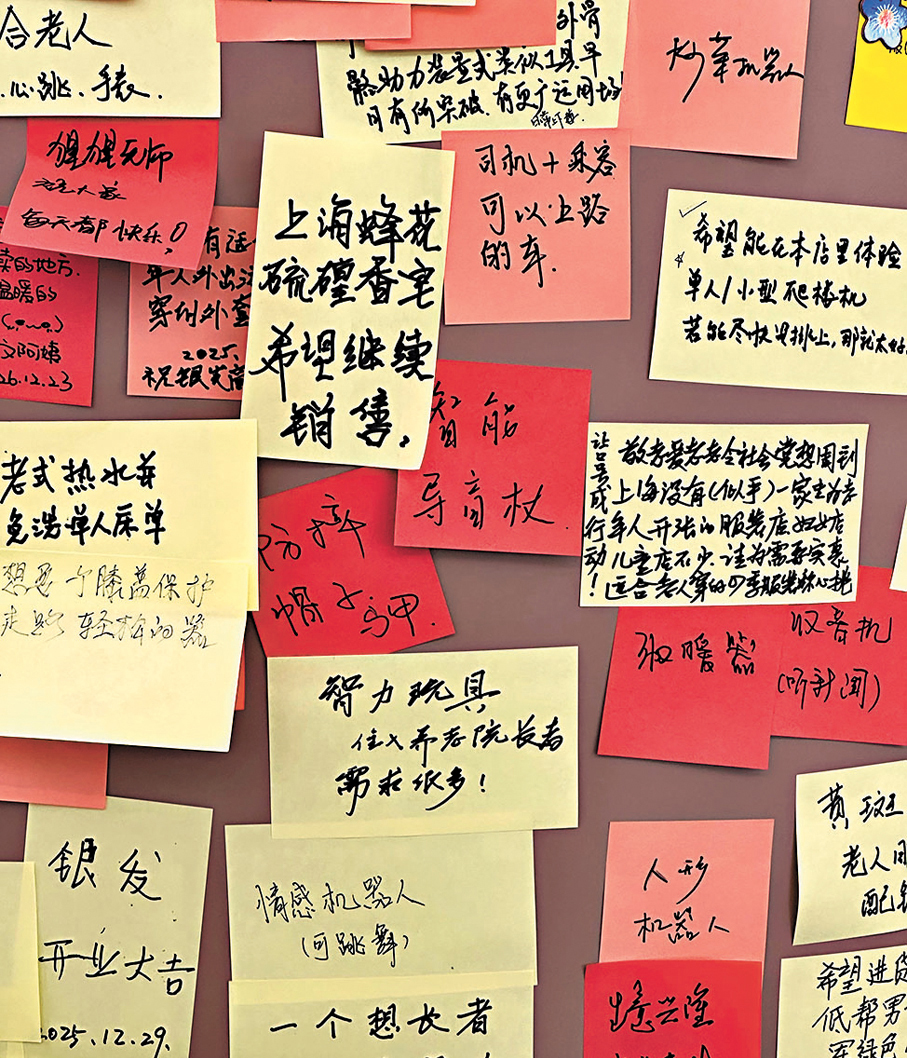 合老人
心跳、手表.
外骨
骼助力装置或类似工具早
日有所突破.有更广运用场
炒菜机器人
猩猩无师
每天都快乐!
的地方.
温暖的
文阿姨
26.12.23
有运
单人外出
穿的外套
2025.
祝银发
上海蜂花
硫磺香皂
希望继续
销售.
司机+乘客
可以上路
的车.
希望能在本店里体验
单人/小型爬楼机
若能尽快安排上,那就太好
智能
导盲杖
让
口
号
成
行
动
!
敬老爱老老令社会党想周到
上海没有(似乎)一家专为老
年人开张的服装店妇女店
儿童店不少.请为需要实
适合老人穿的四季服装
老式热水
免洗单人床单
想要个膝盖保护
走路轻松的器
防摔
帽子马甲.
取暖器
收音机
(听新闻)
智力玩具
住入养老院长者
需求很多!
银发
开业大吉
2025.12.29.
情感机器人
(可跳舞)
一个想长者
人形
机器人
生意兴隆
黄斑
老人用
配
希望进货
低帮男
军绿色